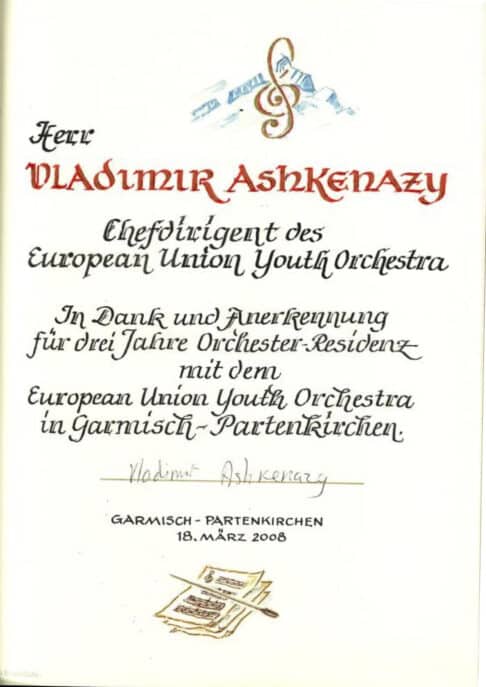 Herr
Vladimir Ashkenazy
Chefdirigent des
European Union Youth Orchestra
In Dank und Anerkennung
für drei Jahre Orchester-Residenz
mit dem
European Union Youth Orchestra
in Garmisch-Partenkirchen.
Vladimir Ashkenazy
GARMISCH-PARTENKIRCHEN
18. MÄRZ 2008